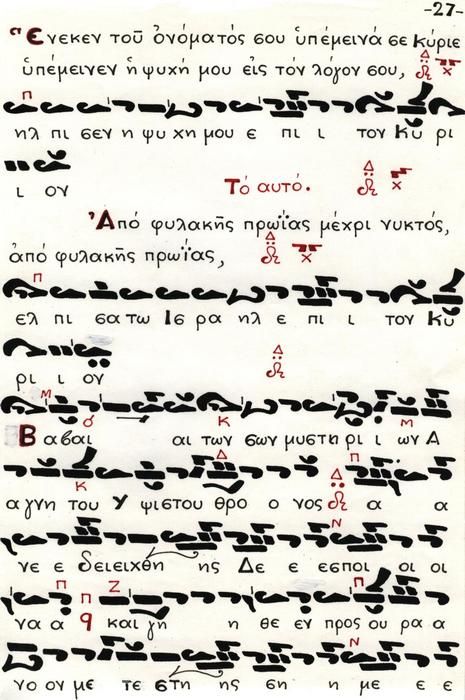 -27-
Ἕνεκεν τοῦ ὀνόματός σου ὑπέμεινά σε Κύριε
ὑπέμεινεν ἡ ψυχή μου εἰς τόν λόγον σου,
ηλ πι σεν η ψυ χη μου ε πι ι τον Κυ ρι
ι ον
Τό αυτό.
Ἀπό φυλακῆς πρωΐας μέχρι νυκτός,
ἀπό φυλακῆς πρωΐας,
ελ πι σα τω Ισ ρα ηλ ε πι ι τον Κυ
ρι ι ον
Βα βαι αι των σων μυστη ρι ι ων Α
α γνη του Υ ψιστου θρο ο νος α α
νε ε δειειχθη ης Δε ε εσποι οι οι
να α και γη η θε εν προς ου ρα α
νο ον με τε στη ης ση η με ε ε